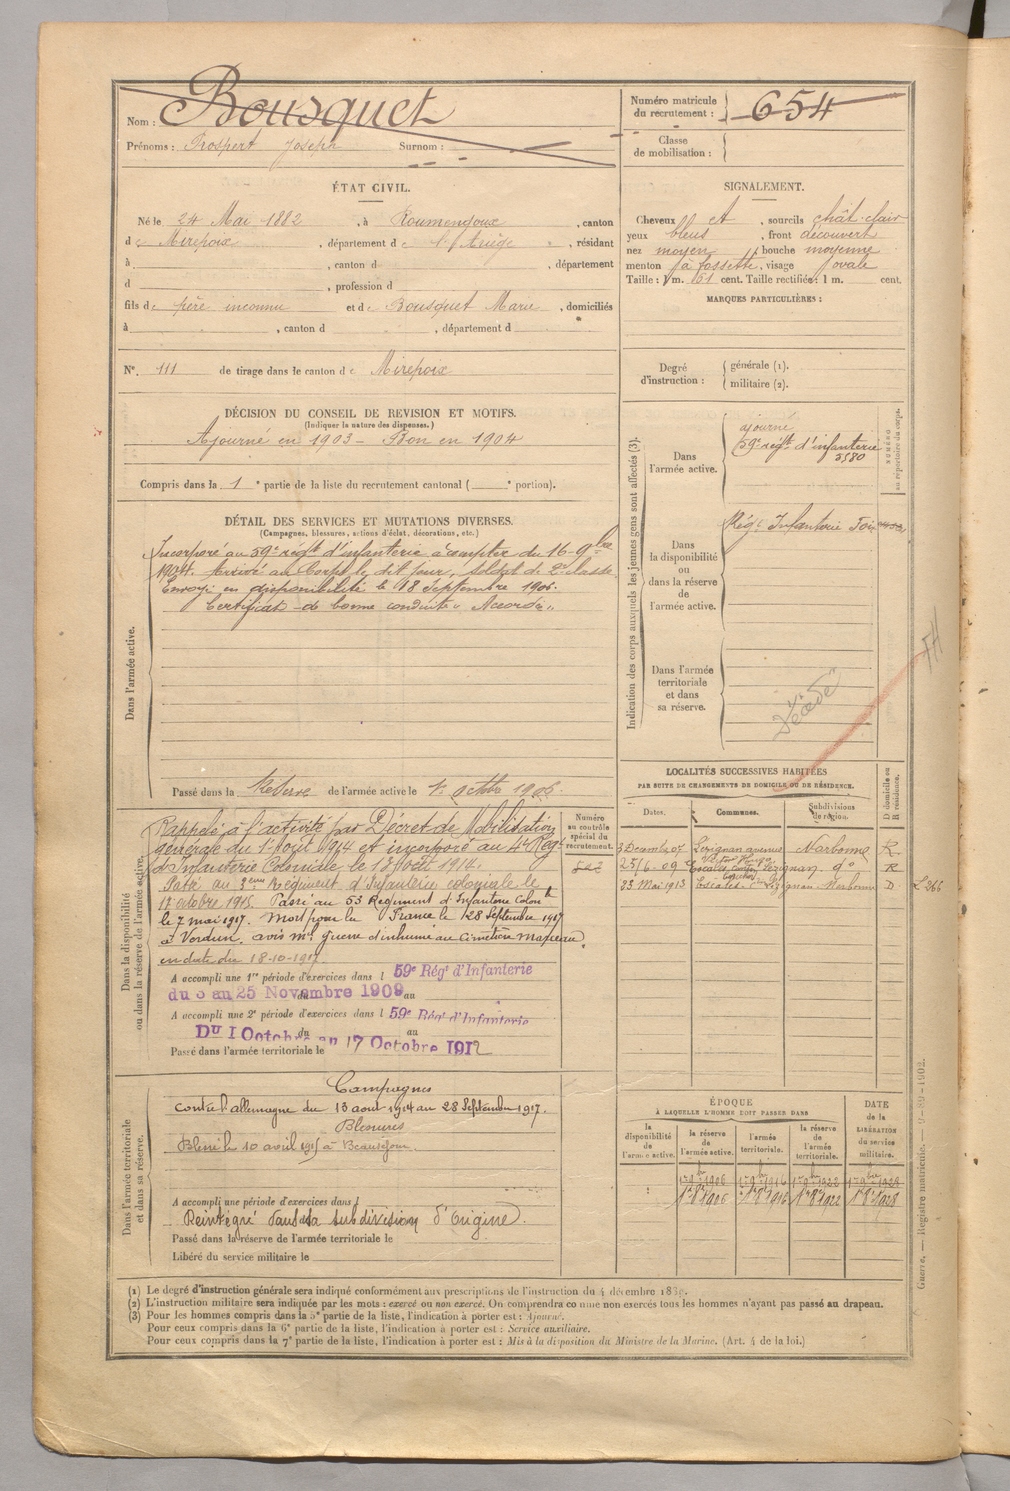 Nom : Bousquet
Prénoms : Prospert Joseph Surnom :
Numéro matricule du recrutement : 654
Classe de mobilisation :
ÉTAT CIVIL.
Né le 24 Mai 1882, à Roumengoux, canton
de Mirepoix, département de l'Ariège, résidant
à , canton d , département
d , profession d
fils de père inconnu et de Bousquet Marie, domiciliés
à , canton d , département d
N°. 111 de tirage dans le canton de Mirepoix
DÉCISION DU CONSEIL DE REVISION ET MOTIFS.
(Indiquer la nature des dispenses.)
Ajourné en 1903 - Bon en 1904
Compris dans la 1e partie de la liste du recrutement cantonal ( e portion).
DÉTAIL DES SERVICES ET MUTATIONS DIVERSES.
(Campagnes, blessures, actions d'éclat, décorations, etc.)
Dans l'armée active.
Incorporé au 59e régt d'infanterie à compter du 16-9bre
1904. Arrivé au Corps le dit jour, soldat de 2e classe
Envoyé en disponibilité le 18 Septembre 1906.
Certificat de bonne conduite « Accordé »
Passé dans la Réserve de l'armée active le 1er octobre 1906.
Dans la disponibilité ou dans la réserve de l'armée active.
Numéro au contrôle spécial du recrutement.
Rappelé à l'activité par Décret de Mobilisation
générale du 1er Août 1914 et incorporé au 4e Régt
d'Infanterie Coloniale, le 13 Août 1914.
Passé au 3ème Régiment d'Infanterie coloniale le
17 octobre 1915. Passé au 53 Régiment d'Infanterie Colonle
le 7 mai 1917. Mort pour la France le 28 Septembre 1917
à Verdun, avis mel guerre d'inhumé au Cimetière Marceau,
en date du 18-10-1917
A accompli une 1re période d'exercices dans l 59e Régt d'Infanterie
du 3 au 25 Novembre 1909 au
A accompli une 2e période d'exercices dans l 59e Régt d'Infanterie
Du 1 Octobre au 17 Octobre 1912
Passé dans l'armée territoriale le
Dans l'armée territoriale et dans sa réserve.
Campagnes
contre l'allemagne du 13 aout 1914 au 28 Septembre 1917.
Blessures
Blessé le 10 avril 1915 à Beauséjour.
A accompli une période d'exercices dans l
Réintégré dans la subdivision d'Origine.
Passé dans la réserve de l'armée territoriale le
Libéré du service militaire le
SIGNALEMENT.
Cheveux et, sourcils chât-clair
yeux bleus, front découvert
nez moyen, bouche moyenne
menton à fossette, visage ovale
Taille : 1 m. 61 cent. Taille rectifiée : 1 m. cent.
MARQUES PARTICULIÈRES :
Degré d'instruction : générale (1).
militaire (2).
Indication des corps auxquels les jeunes gens sont affectés (3).
NUMÉRO au répertoire du corps.
Dans l'armée active.
ajourné
59e régt d'infanterie
5580
Dans la disponibilité ou dans la réserve de l'armée active.
Régt Infanterie Foix
Dans l'armée territoriale et dans sa réserve.
Décédé
LOCALITÉS SUCCESSIVES HABITÉES
PAR SUITE DE CHANGEMENTS DE DOMICILE OU DE RÉSIDENCE.
Dates. Communes. Subdivisions de région. D domicile ou R résidence.
3 Décemb 07 Lézignan avenue Narbonne R
25/6-09 Escales Lézignan do R
23 Mai 1913 Escales Lézignan Narbonne D
ÉPOQUE
À LAQUELLE L'HOMME DOIT PASSER DANS
la disponibilité de l'armée active. la réserve de l'armée active. l'armée territoriale. la réserve de l'armée territoriale. DATE de la LIBÉRATION du service militaire.
1er 8e 1906 1er 8e 1916 1er 8e 1922 1er 8e 1928
(1) Le degré d'instruction générale sera indiqué conformément aux prescriptions de l'instruction du 4 décembre 1889.
(2) L'instruction militaire sera indiquée par les mots : exercé ou non exercé. On comprendra comme non exercés tous les hommes n'ayant pas passé au drapeau.
(3) Pour les hommes compris dans la 5e partie de la liste, l'indication à porter est : Ajourné.
Pour ceux compris dans la 6e partie de la liste, l'indication à porter est : Service auxiliaire.
Pour ceux compris dans la 7e partie de la liste, l'indication à porter est : Mis à la disposition du Ministre de la Marine. (Art. 4 de la loi.)